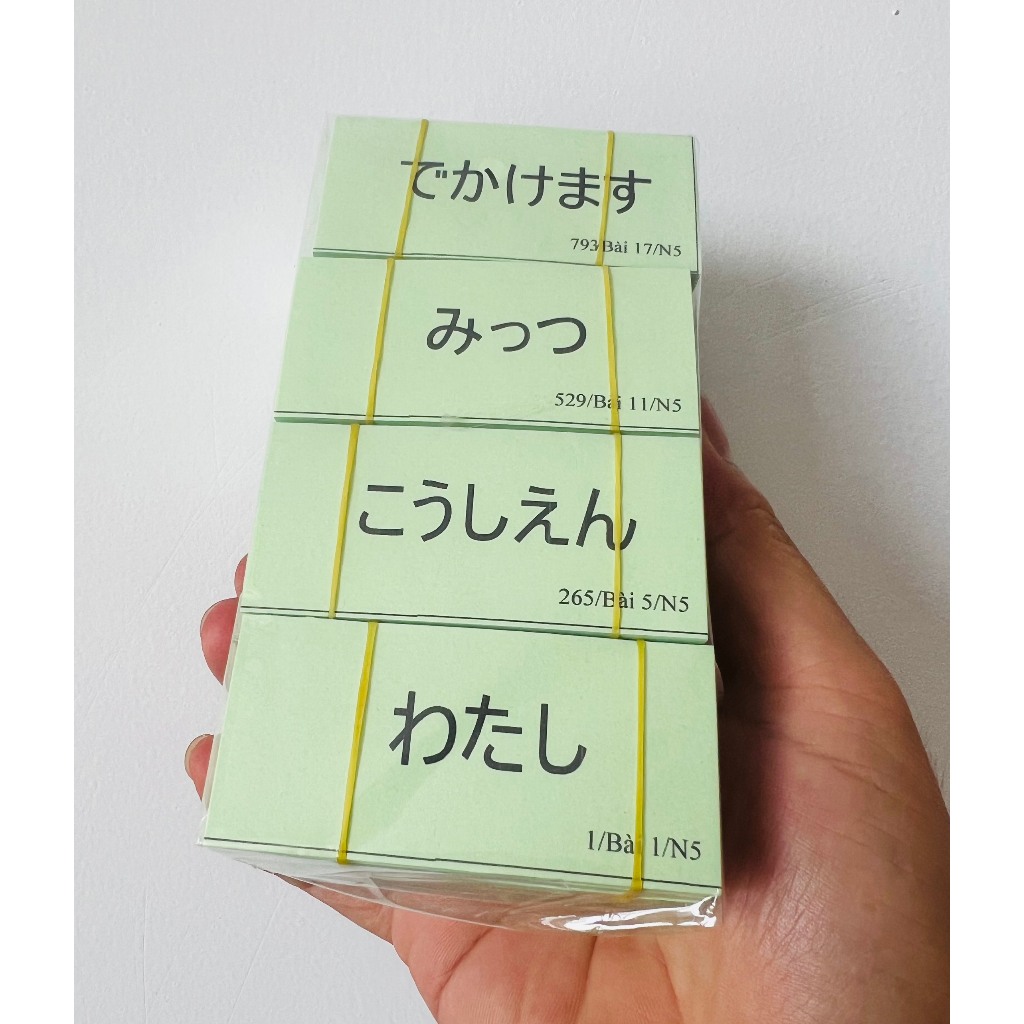 でかけます
793/Bài 17/N5
みっつ
529/Bài 11/N5
こうしえん
265/Bài 5/N5
わたし
1/Bài 1/N5